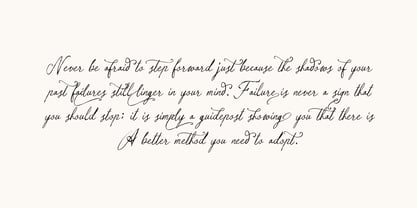 Never be afraid to step forward just because the shadows of your
past failures still linger in your mind. Failure is never a sign that
you should stop; it is simply a guidepost showing you that there is
A better method you need to adopt.